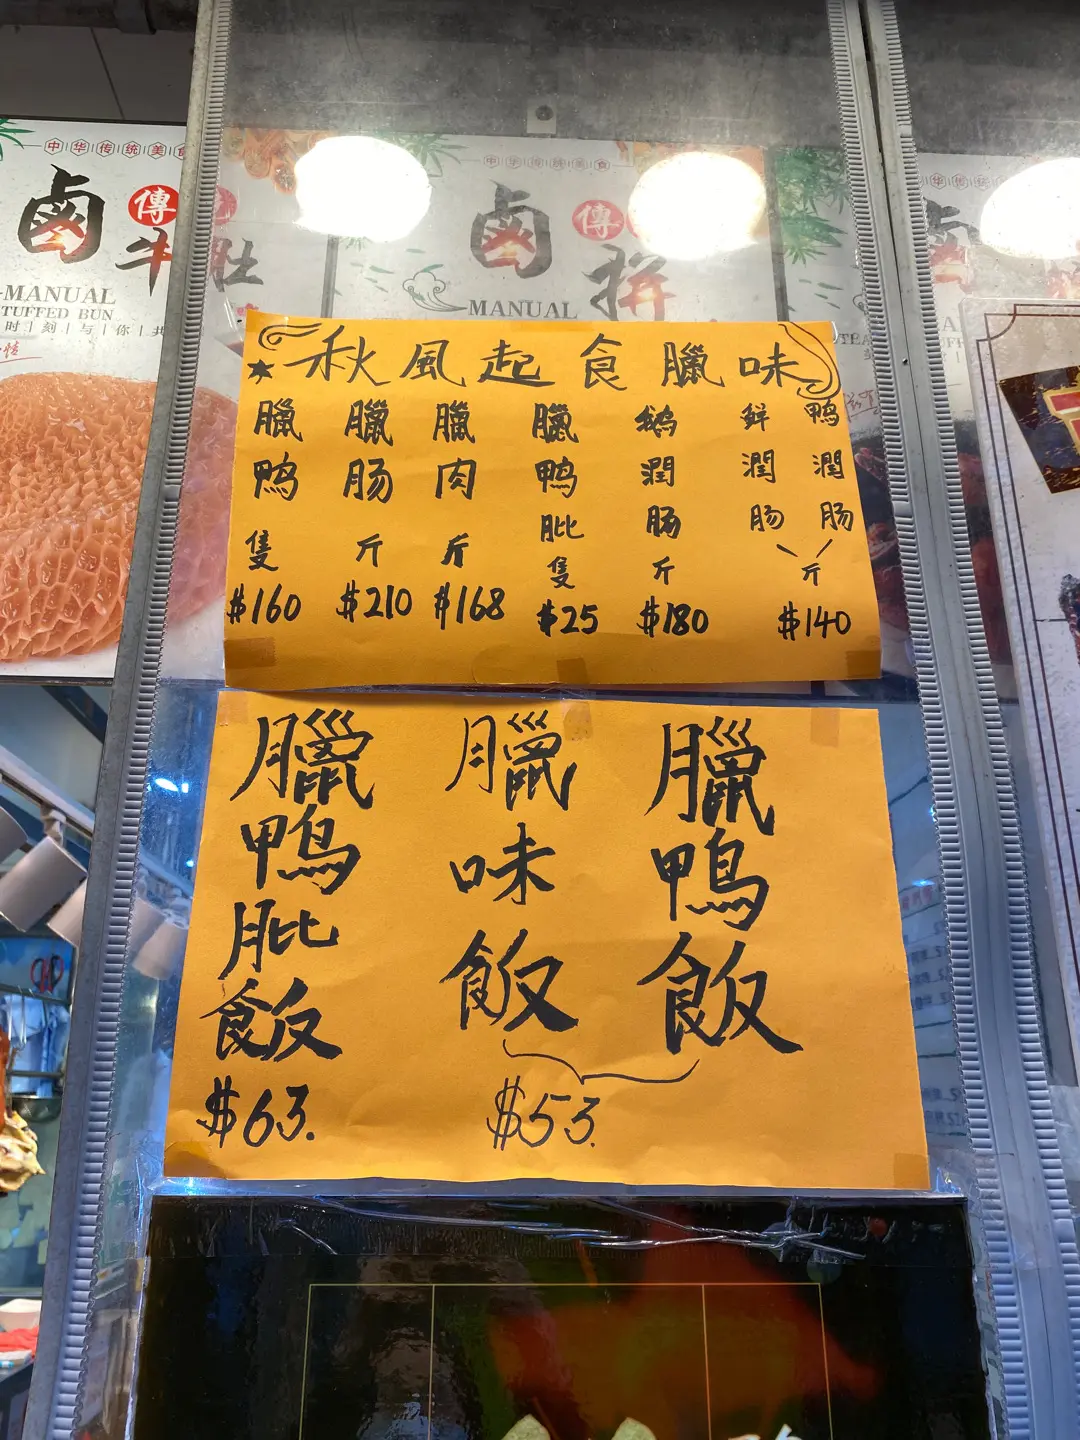 中华传统美食
卤
傳
牛肚
MANUAL
TUFFED BUN
时刻与你共
中华传统美食
卤
傳
拼
MANUAL
秋風起食臘味
臘鴨 隻 $160
臘肠 斤 $210
臘肉 斤 $168
臘鴨肶 隻 $25
鵝潤肠 斤 $180
鮮潤肠
鴨潤肠
斤 $140
臘鴨肶飯 $63.
臘味飯
臘鴨飯
$53.